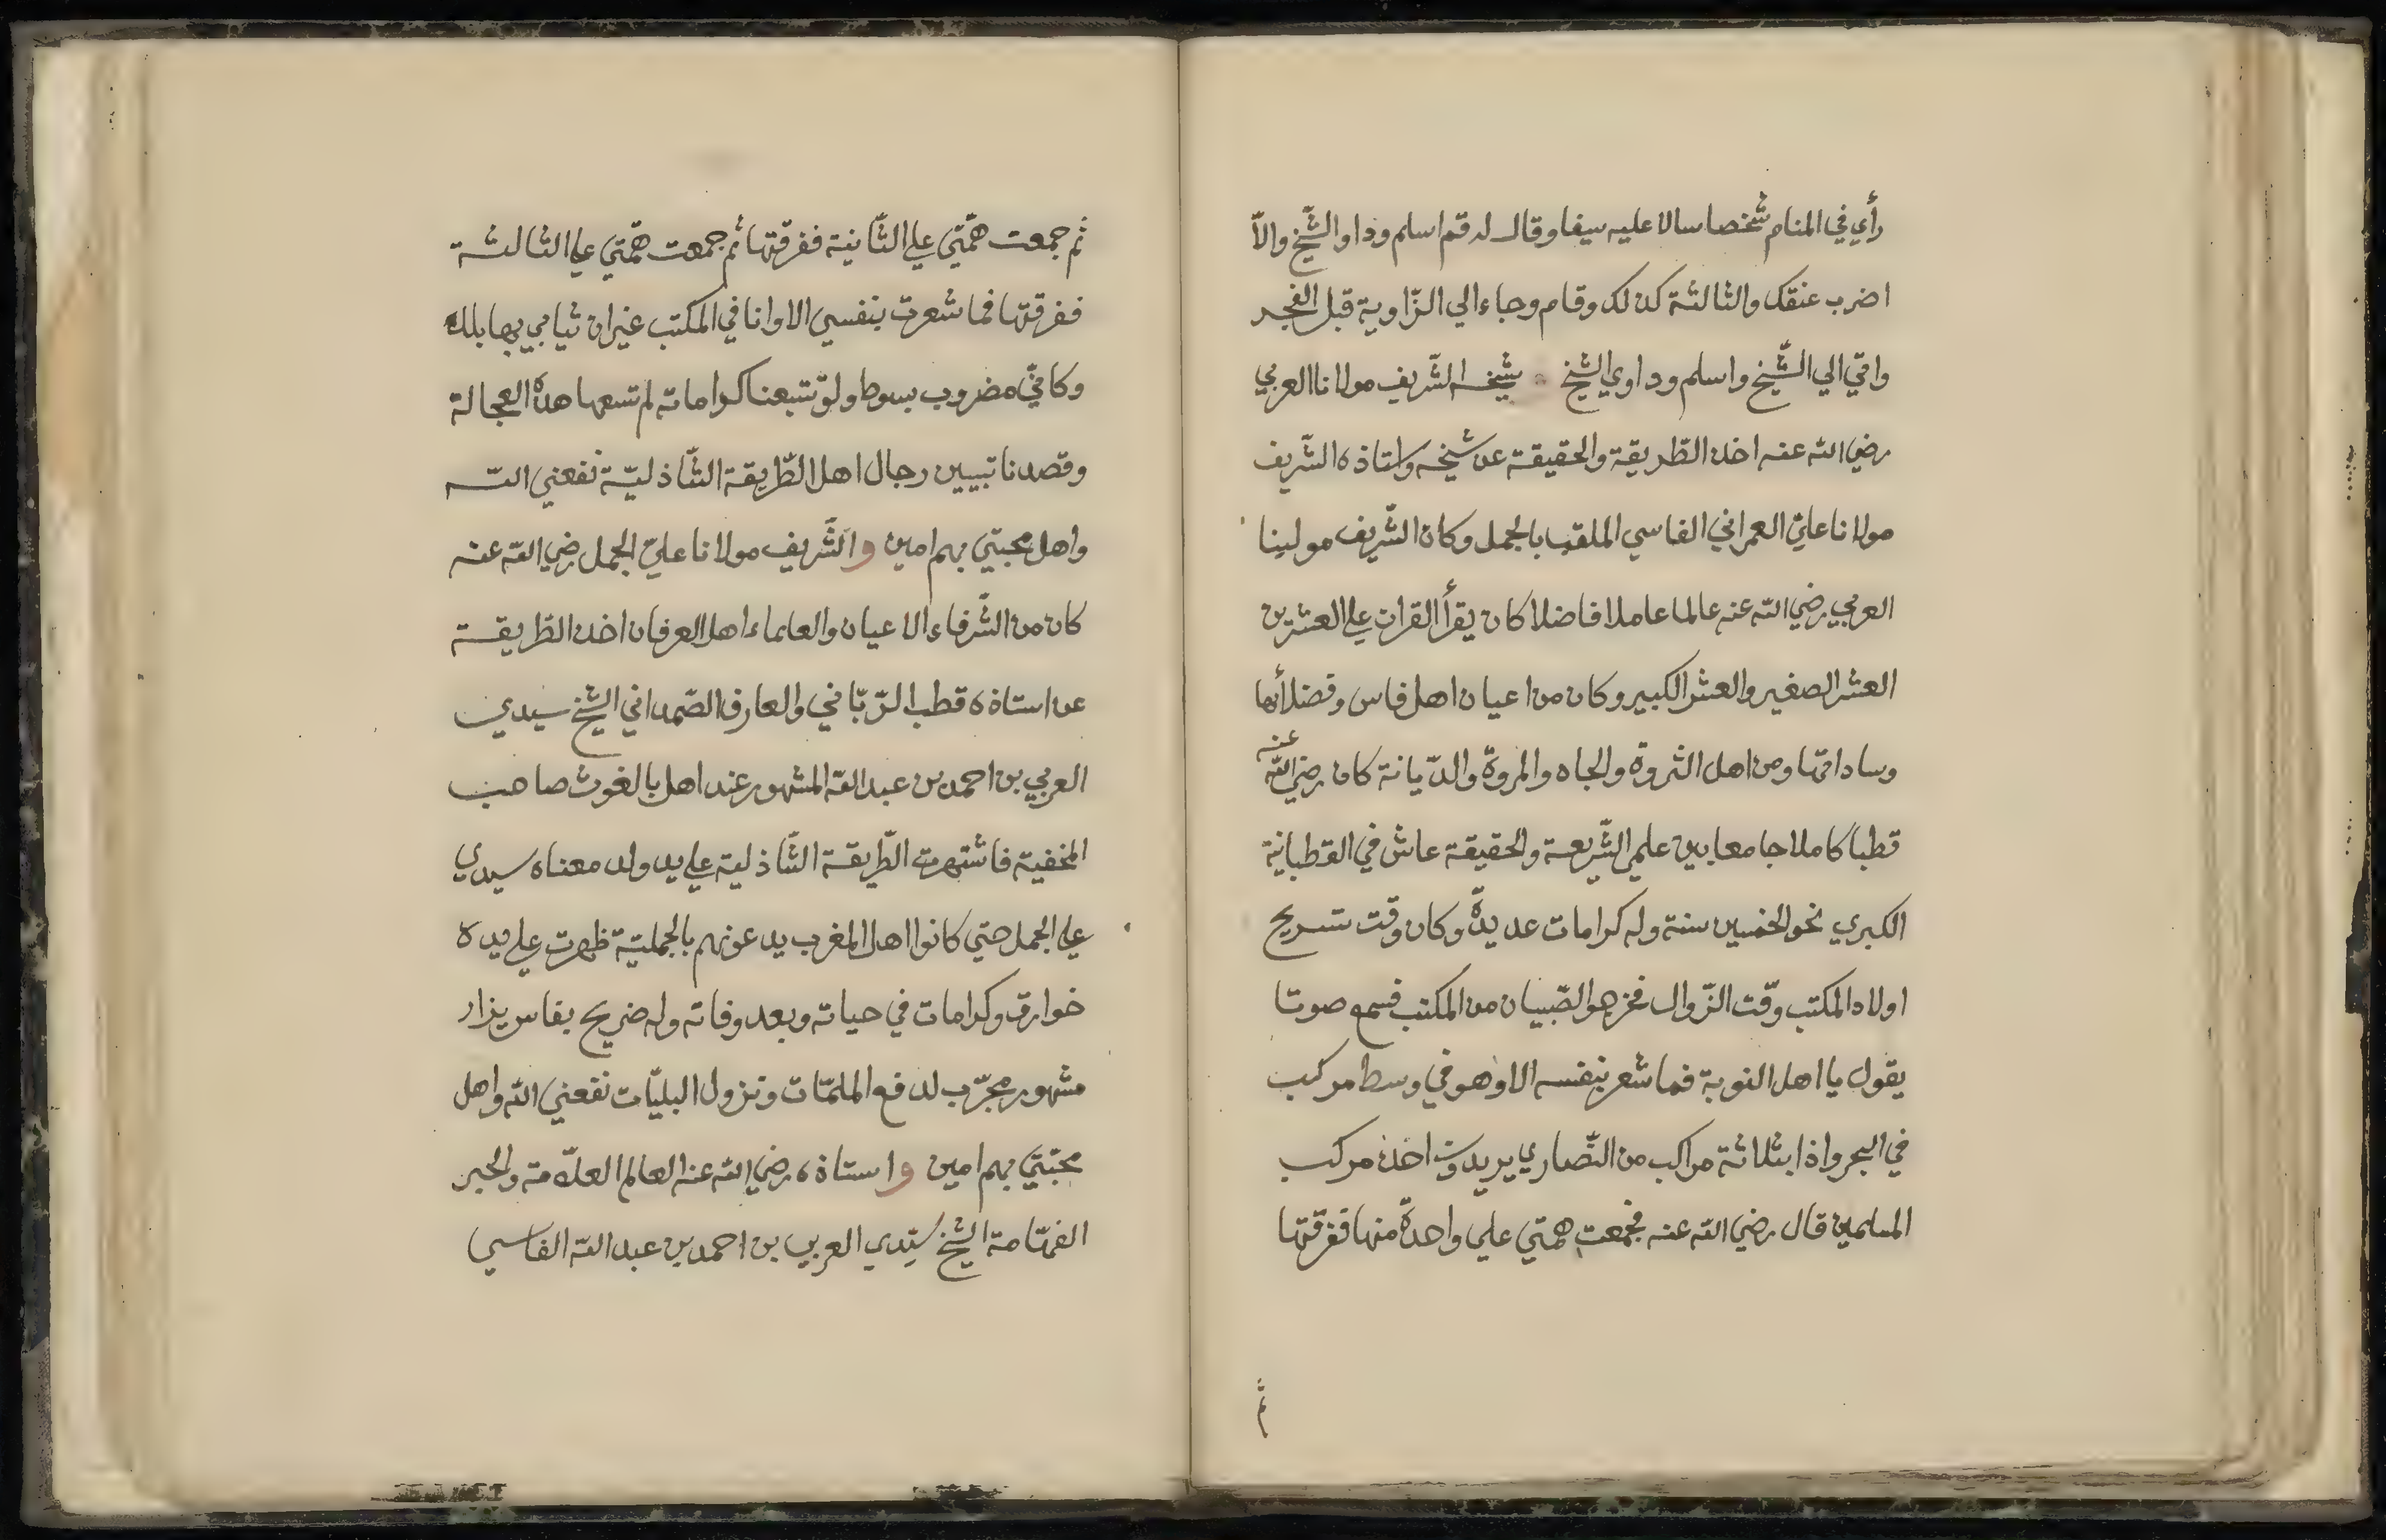 رأي في المنام شخصا سالا عليه سيفا وقال له قم اسلم وداو الشّيخ والاّ
اضرب عنقك والثالثة كذلك وقام وجاء الي الزّاوية قبل الفجر
واتي الي الشّيخ واسلم وداوي الشيخ شيخه الشّريف مولانا العربي
رضي الله عنه اخذ الطّريقة والحقيقة عن شيخه واستاذه الشّريف
مولانا عليّ العمراني الفاسي الملقب بالجمل وكان الشّريف مولينا
العربي رضي الله عنه عالما عاملا فاضلا كان يقرأ القران علي العشرين
العشر الصغير والعشر الكبير وكان من اعيان اهل فاس وفضلأئها
وساداتها ومن اهل الثروة والجاه والمروة والدّيانة كان رضي الله عنه
قطبا كاملا جامعا بين علمي الشّريعة والحقيقة عاش في القطبانية
الكبري نحو الخمسين سنة وله كرامات عديدة وكان وقت تسريح
اولاد المكتب وقت الزّوال فخرجوا الصّبيان من المكتب فسمع صوتا
يقول يا اهل النوبة فما شعر بنفسه الا وهو في وسط مركب
في البحر واذا بثلاثة مراكب من النّصاري يريدون اخذ مركب
المسلمين قال رضي الله عنه فجمعت همتي علي واحدة منها ففرّقتها
ثم
ثم جمعت همّتي علي الثّانية ففرقتها ثم جمعت همّتي علي الثالثة
ففرقتها فما شعرت بنفسي الا وانا في المكتب غير ان ثيابي بها بلل
وكانّي مضروب بسوط ولو تتبعنا كراماته لم تسعها هذه العجالة
وقصدنا تبيين رجال اهل الطّريقة الشّاذليّة نفعني الله
واهل محبتي بهم امين والشّريف مولانا عليّ الجمل رضي الله عنه
كان من الشّرفاء الاعيان والعلماء اهل العرفان اخذ الطّريقة
عن استاذه قطب الرّبّاني والعارف الصّمداني الشيخ سيدي
العربي بن احمد بن عبد الله المشهور عند اهل بالغوث صاحب
المخفية فاشتهرت الطّريقة الشّاذلية علي يد ولد معناه سيدي
علي الجمل حتي كانوا اهل المغرب يدعونهم بالجمليّة ظهرت علي يده
خوارق وكرامات في حياته وبعد وفاته وله ضريح بفاس يزار
مشهور مجرّب لدفع الملمّات ونزول البليّات نفعني الله واهل
محبّتي بهم امين واستاذه رضي الله عنه العالم العلاّمة والحبر
الفهّامة الشيخ سيّدي العربي بن احمد بن عبد الله الفاسي